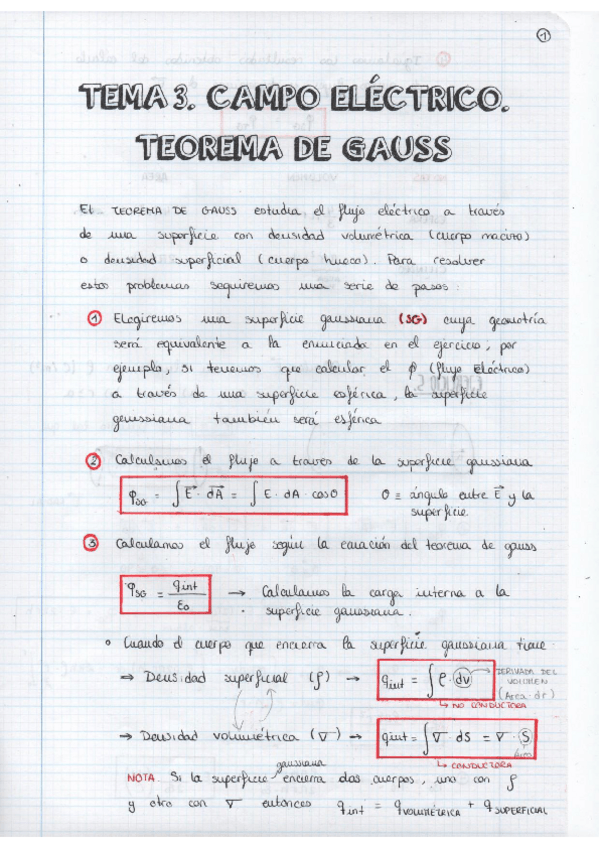 1
TEMA 3. CAMPO ELÉCTRICO.
TEOREMA DE GAUSS
El TEOREMA DE GAUSS estudia el flujo eléctrico a través
de una superficie con densidad volumétrica (cuerpo macizo)
o densidad superficial (cuerpo hueco). Para resolver
estos problemas seguiremos una serie de pasos:
1 Elegiremos una superficie gaussiana (SG) cuya geometría
será equivalente a la enunciada en el ejercicio, por
ejemplo, si tenemos que calcular el ϕ (flujo eléctrico)
a través de una superficie esférica, la superficie
genssiana también será esférica
2 Calculamos el flujo a través de la superficie gaussiana
φSG = ∫ E⃗ · dA⃗ = ∫ E · dA · cosθ θ ≡ ángulo entre E⃗ y la
superficie.
3 Calculamos el flujo según la ecuación del teorema de gauss
φSG = qint / ε0 → Calculamos la carga interna a la
superficie gaussiana.
• Cuando el cuerpo que encierra la superficie gaussiana tiene:
⇒ Densidad superficial (ρ) → qint = ∫ ρ · dv → DERIVADA DEL
VOLUMEN
(Área · dr)
↳ NO CONDUCTORA
→ Densidad volumétrica (∇) → qint = ∫ ∇ · dS = ∇ · S
↳ CONDUCTORA
gaussiana
NOTA. Si la superficie encierra dos cuerpos, uno con ρ
y otro con ∇ entonces qint = qVOLUMÉTRICA + qSUPERFICIAL